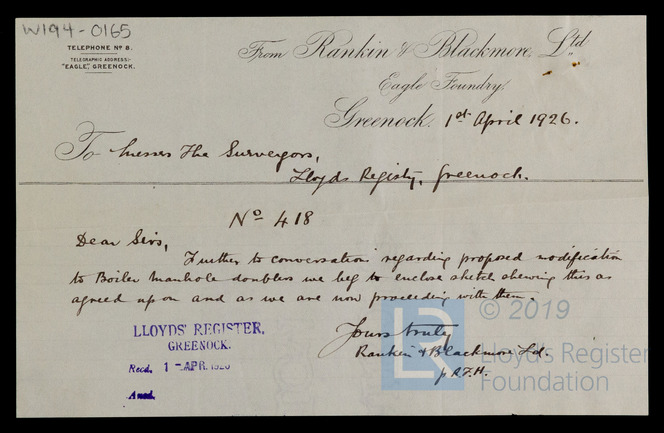 W194-0165
TELEPHONE Nº 8.
TELEGRAPHIC ADDRESS:-
"EAGLE", GREENOCK.
From Rankin & Blackmore, Ltd
Eagle Foundry,
Greenock. 1st April 1926.
To Messrs The Surveyors,
Lloyds Registry, Greenock.
Nº 418
Dear Sirs,
Further to conversation regarding proposed modification
to Boiler Manhole doublers we beg to enclose sketch shewing this as
agreed upon and as we are now proceeding with them.
Yours truly
Rankin & Blackmore Ld.
p R.F.H.
LLOYDS' REGISTER,
GREENOCK.
Recd. 1-APR.1926
Ansd.
LR
© 2019
Lloyd's Register
Foundation